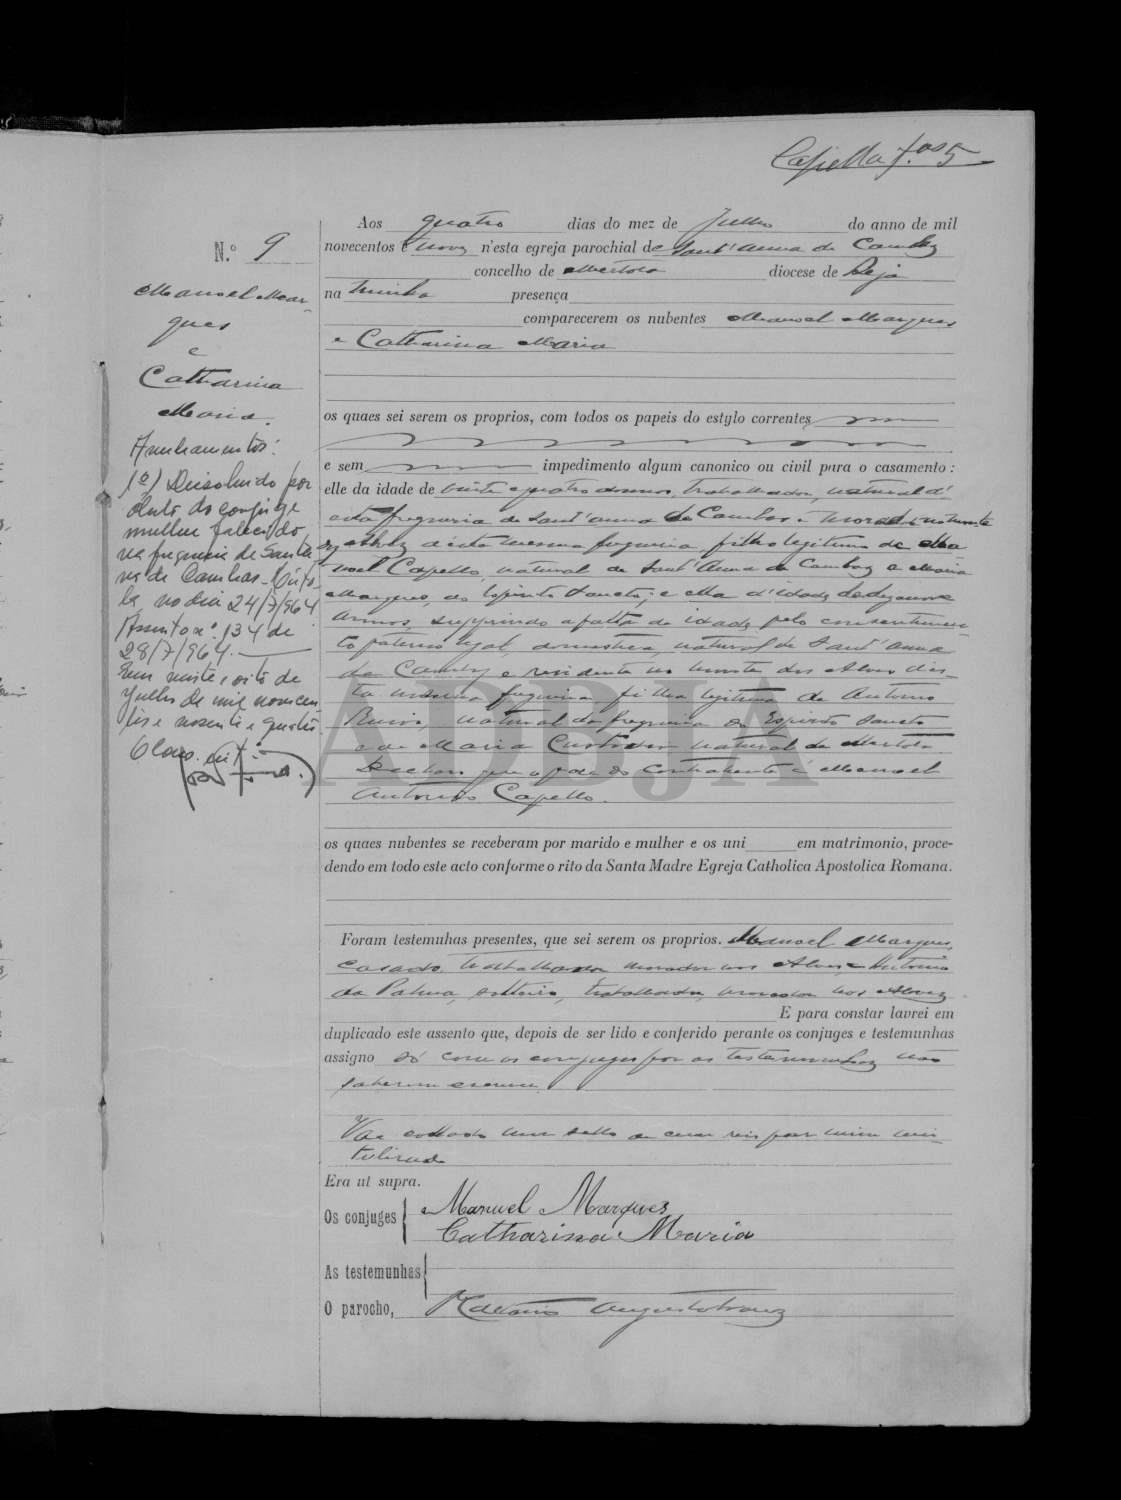 Capella f.as 5
N.º 9
Manoel Mar-
ques
e
Catharina
Maria.
Averbamentos:
1º) Dissolvido por
óbito do conjuge
mulher falecido
na freguesia de Santa
na de Cambas - Mérto-
la, no dia 24/7/964
Assento nº. 134 de
28/7/964.
Em vinte e oito de
Julho de mil novecen-
tos e sessenta e quatro
O
Aos quatro dias do mez de Julho do anno de mil
novecentos e nove n'esta egreja parochial de Sant'Anna de Cambas
concelho de Mertola diocese de Beja
na minha presença
comparecerem os nubentes Manoel Marques
e Catharina Maria
os quaes sei serem os proprios, com todos os papeis do estylo correntes
e sem impedimento algum canonico ou civil para o casamento:
elle da idade de vinte e quatro annos, trabalhador, natural d'
esta freguesia de Sant'Anna de Cambas e morador no monte
d'esta mesma freguesia, filho legitimo de Ma-
noel Capello, natural de Sant'Anna de Cambas e Maria
Marques, do Espirito Santo; e ella d'idade de dezenove
annos, supprindo a falta de idade pelo consentimen-
to paterno legal, domestica, natural de Sant'Anna
de Cambas e residente no monte dos Alves d'es-
ta mesma freguesia filha legitima de Antonio
Ruivo, natural da freguesia do Espirito Santo
e de Maria Custodia natural de Mertola
Declaro que o pae do contrahente é Manoel
Antonio Capello.
os quaes nubentes se receberam por marido e mulher e os uni em matrimonio, proce-
dendo em todo este acto conforme o rito da Santa Madre Egreja Catholica Apostolica Romana.
Foram testemuhas presentes, que sei serem os proprios. Manoel Marques,
casado, trabalhador morador nos Alves, e Antonio
da Palma, solteiro, trabalhador, morador nos Alves
E para constar lavrei em
duplicado este assento que, depois de ser lido e conferido perante os conjuges e testemunhas
assigno só com os conjuges por as testemunhas não
saberem escrever.
Vae collado um sello de cem reis por mim inu-
tilisado
Era ut supra.
Os conjuges
Manuel Marques
Catharina Maria
As testemunhas
O parocho, Augusto
ADBJA